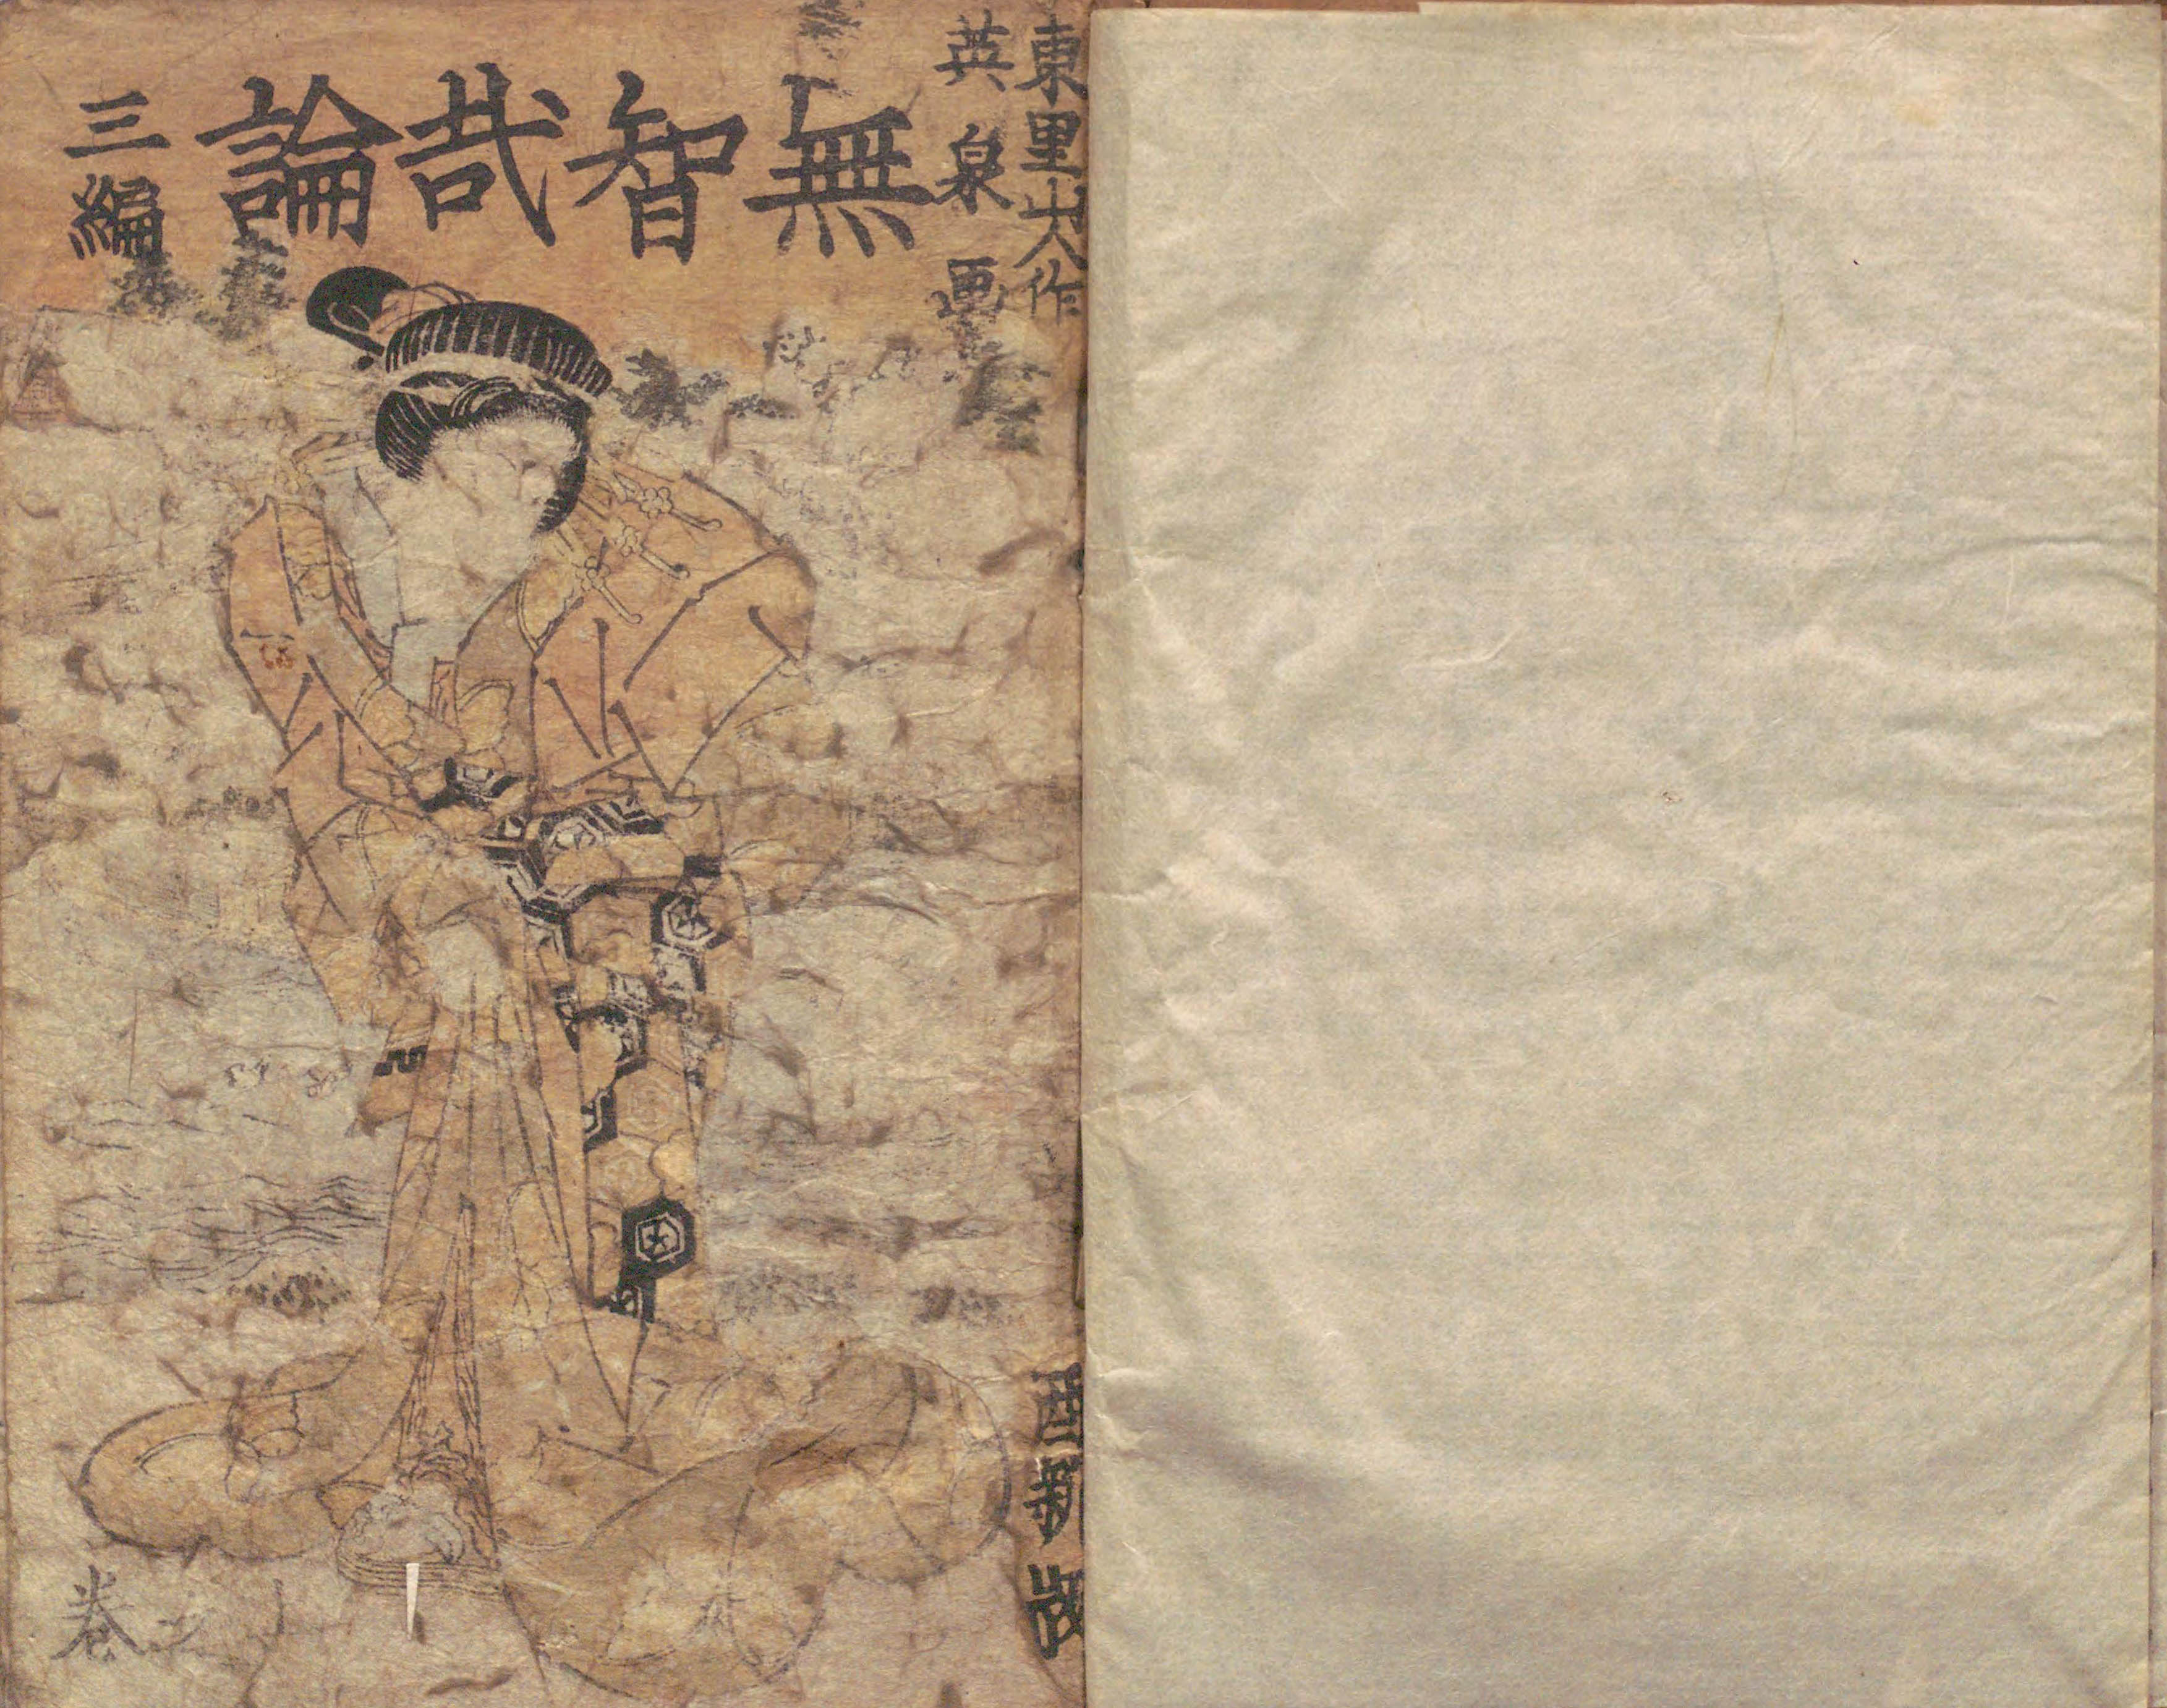 東里山人作
英泉画
無智哉論
三編
酉新版
巻